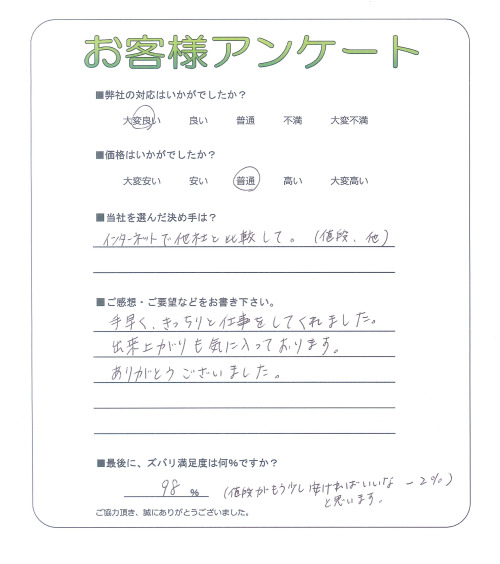 お客様アンケート
■弊社の対応はいかがでしたか？
大変良い 良い 普通 不満 大変不満
■価格はいかがでしたか？
大変安い 安い 普通 高い 大変高い
■当社を選んだ決め手は？
インターネットで他社と比較して。（値段、他）
■ご感想・ご要望などをお書き下さい。
手早く、きっちりと仕事をしてくれました。
出来上がりも気に入っております。
ありがとうございました。
■最後に、ズバリ満足度は何%ですか？
98 % （値段がもう少し安ければいいな －2%）
と思います。
ご協力頂き、誠にありがとうございました。